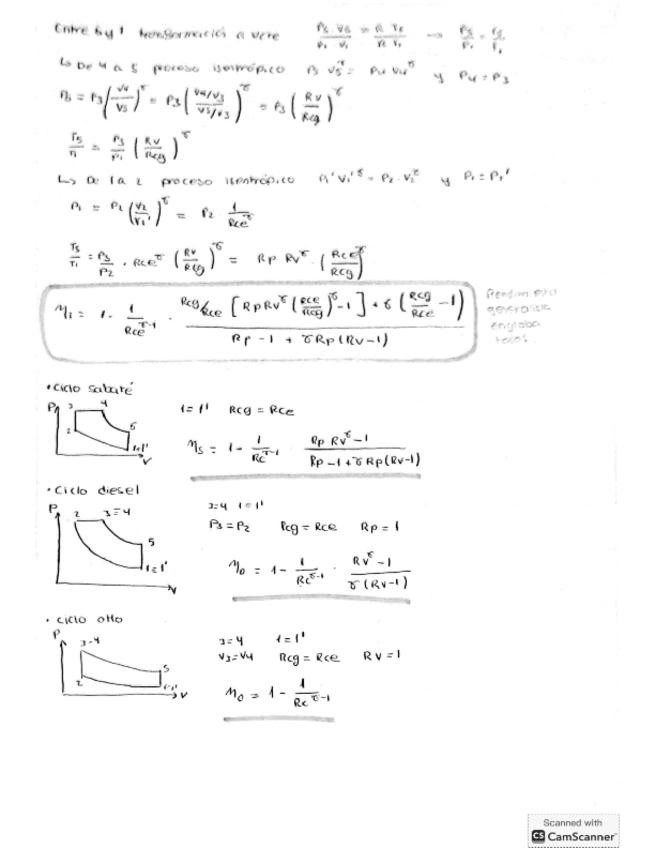 Entre 5 y 1 transformació a V cte P5·V5/P1·V1 = R T5/R T1 → P5/P1 = T5/T1
↳ De 4 a 5 proceso isentrópico P5 V5^γ = P4 V4^γ y P4 = P3
P5 = P3 (V4/V5)^γ = P3 ((V4/V3)/(V5/V3))^γ = P3 (Rv/Rcg)^γ
T5/T1 = P3/P1 (Rv/Rcg)^γ
↳ De 1 a 2 proceso isentrópico P1' V1'^γ = P2 · V2^γ y P1 = P1'
P1 = P2 (V2/V1')^γ = P2 1/Rce^γ
T5/T1 = P3/P2 · Rce^γ (Rv/Rcg)^γ = Rp Rv^γ · (Rce/Rcg)^γ
ηi = 1 - 1/Rce^γ-1 · (Rcg/Rce [Rp Rv^γ (Rce/Rcg)^γ - 1] + γ (Rcg/Rce - 1))/(Rp - 1 + γ Rp (Rv-1))
generalista
engloba
todos.
• Ciclo sabaté
P 3 4 2 5 1=1' V
1=1' Rcg = Rce
ηs = 1 - 1/Rc^γ-1 · (Rp Rv^γ - 1)/(Rp - 1 + γ Rp (Rv-1))
• Ciclo diesel
P 2 3=4 5 1=1' V
3=4 1=1'
P3 = P2 Rcg = Rce Rp = 1
η0 = 1 - 1/Rc^γ-1 · (Rv^γ - 1)/(γ (Rv-1))
• Ciclo otto
P 3-4 2 5 1=1' V
3=4 1=1'
V3=V4 Rcg = Rce Rv = 1
η0 = 1 - 1/Rc^γ-1
Scanned with
CS CamScanner